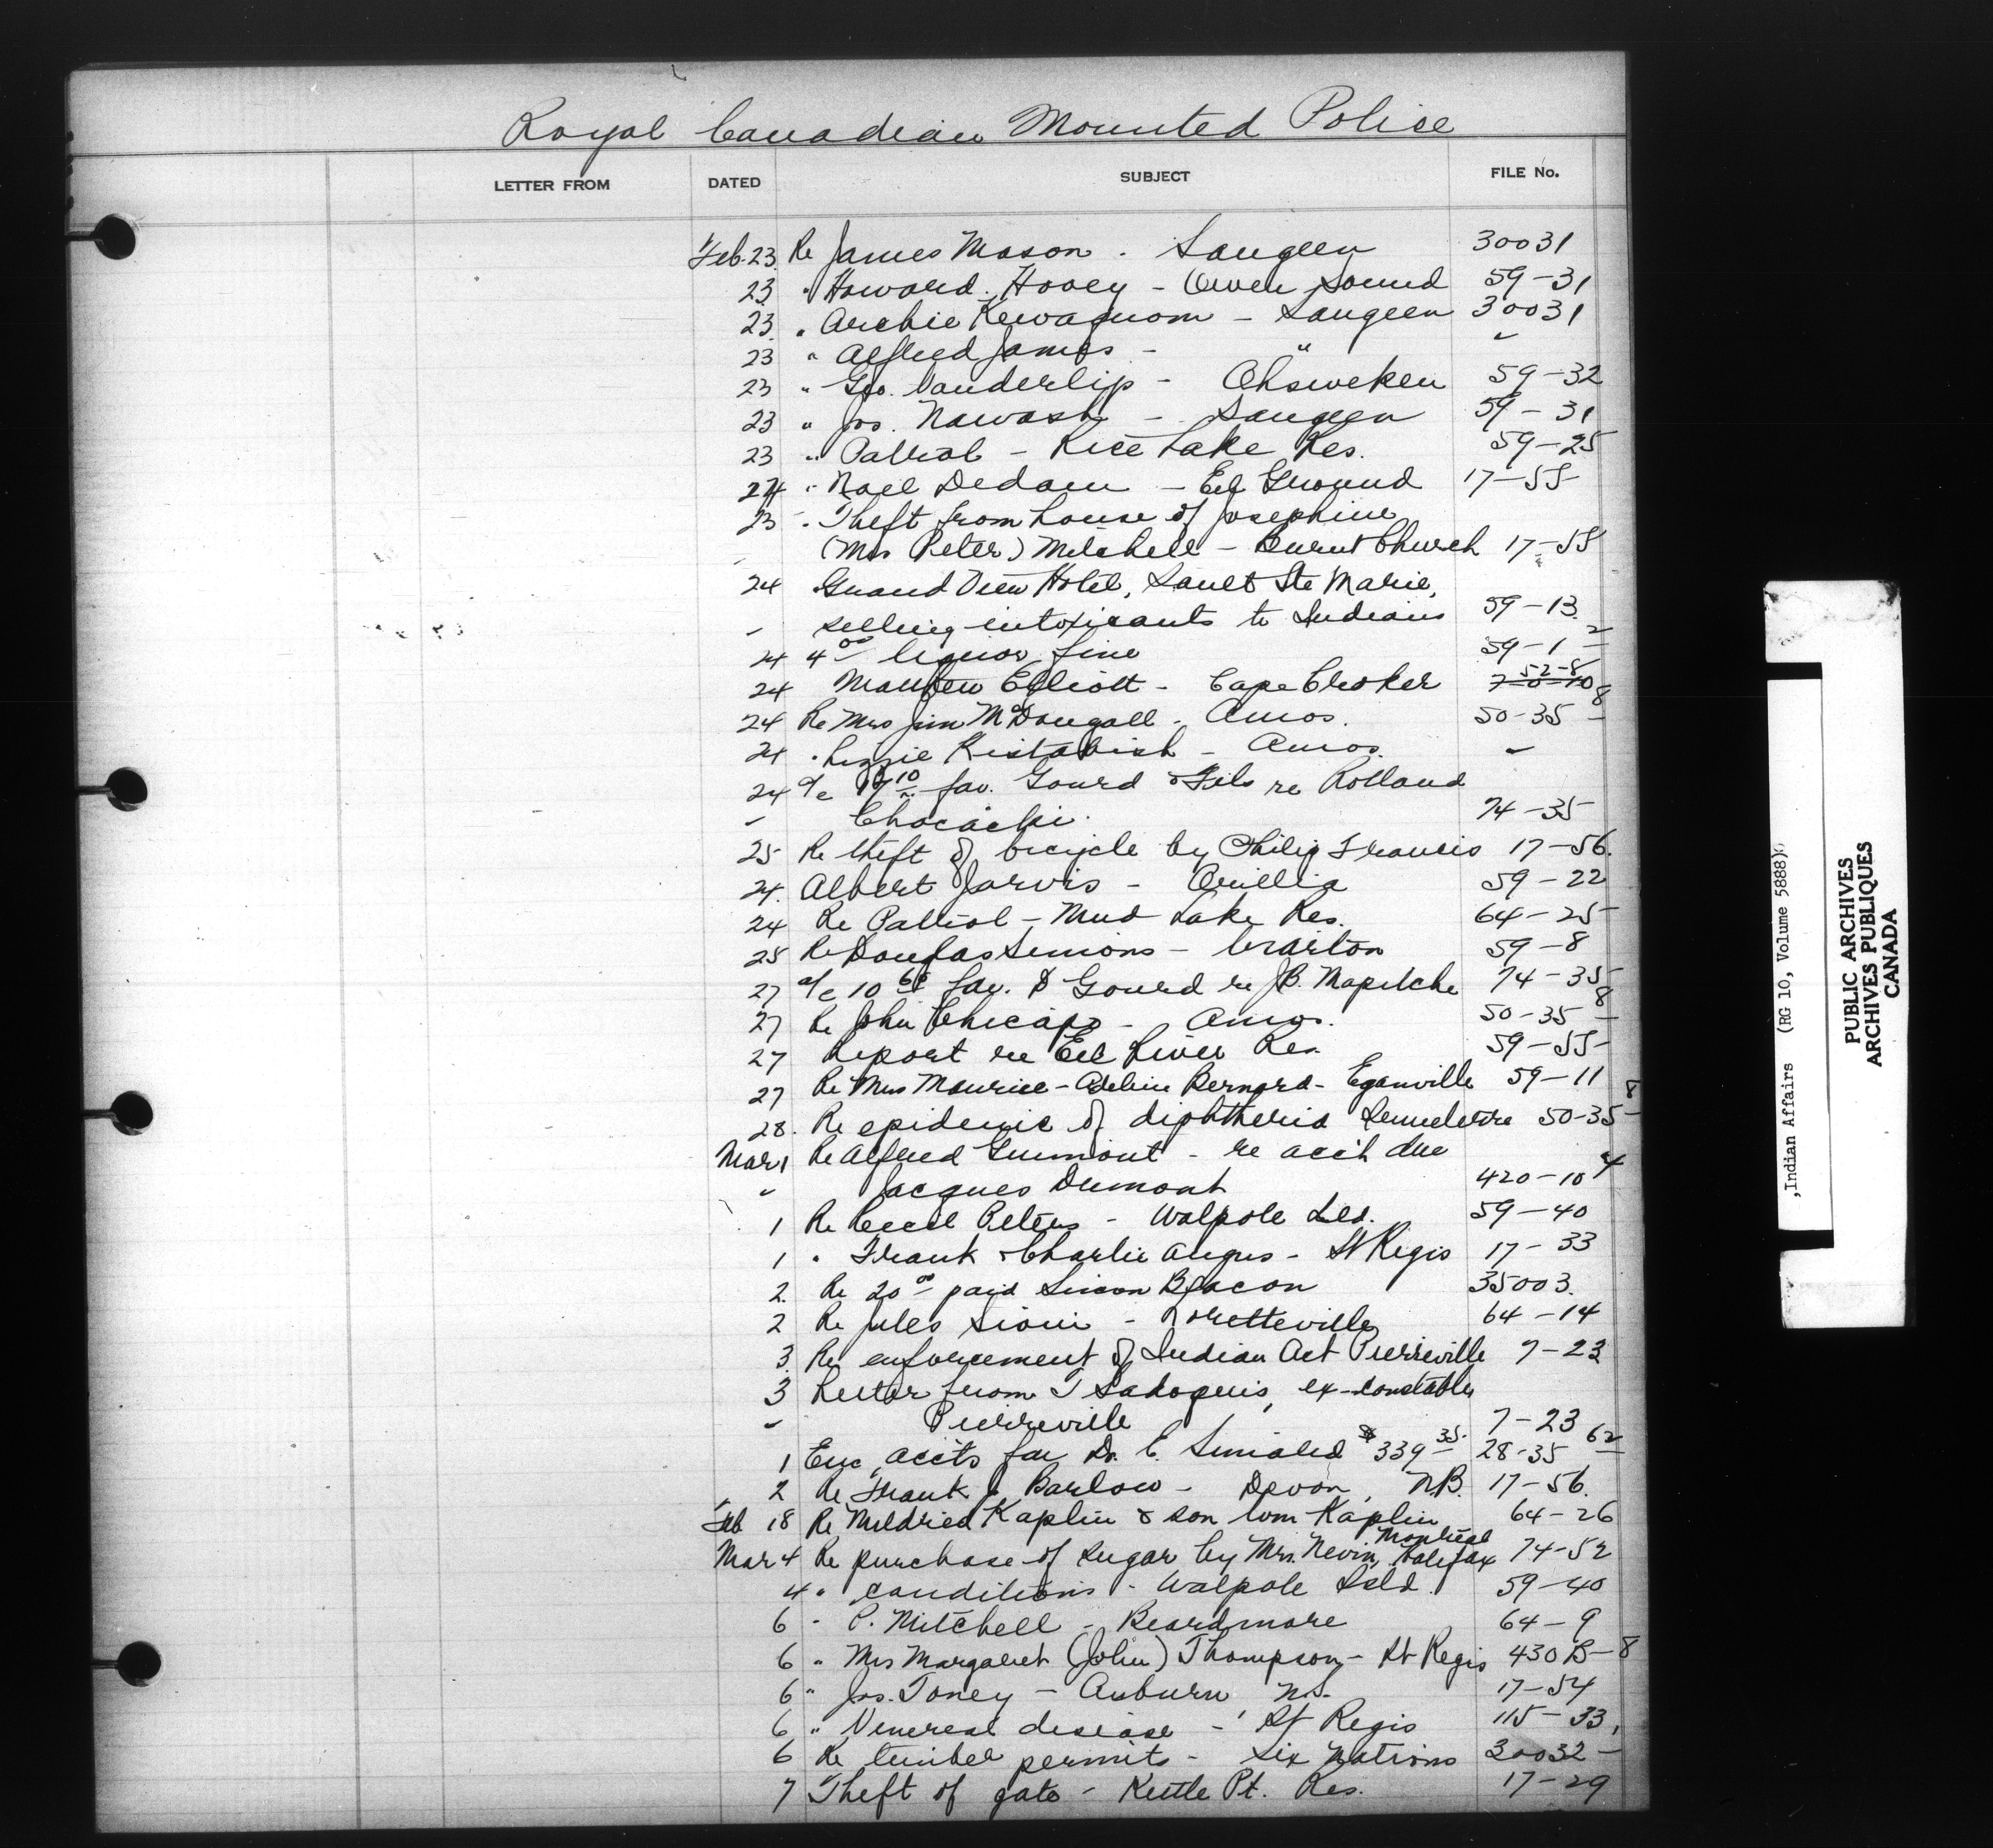 Royal Canadian Mounted Police
LETTER FROM DATED SUBJECT FILE No.
Feb. 23 Re James Mason - Saugeen 30031
23 " Howard Hooey - Owen Sound 59-31
23 " Archie Kewaquom - Saugeen 30031
23 " Alfred James - " "
23 " Geo. Vanderlip - Ohsweken 59-32
23 " Jos. Nawash - Saugeen 59-31
23 " Patrol - Rice Lake Res. 59-25
24 " Noel Dedam - Eel Ground 17-55
23 " Theft from house of Josephine
" (Mrs Peter) Mitchell - Burnt Church 17-55
24 Grand View Hotel, Sault Ste Marie,
" selling intoxicants to Indians 59-13
24 4 00 liquor fine 59-1 2
24 Matthew Elliott - Cape Croker 52-8
24 Re Mrs Jim McDougall - Amos. 50-35 8
24 " Lizzie Kistabish - Amos. "
24 a/c 10 fav. Gourd & Fils re Rolland
" Chocacki 74-35
25 Re theft of bicycle by Philip Francis 17-56.
24. Albert Jarvis - Orillia 59-22
24 Re Patrol - Mud Lake Res. 64-25
25 Re Douglas Simons - Wiarton 59-8
27 a/c 10 fav. D Gourd re J.B. Mapelche 74-35
27 Re John Chicapo - Amos. 50-35 8
27 Report re Eel River Res. 59-55
27 Re Mrs Maurice - Adeline Bernard - Eganville 59-11
28. Re epidemic of diphtheria Senneterre 50-35 8
Mar 1 Re Alfred Guimont - re acc't due
" Jacques Dumont 420-10 4
1 Re Cecil Peters - Walpole Isld. 59-40
1 " Frank & Charlie Angus - St Regis 17-33
2. Re 20 00 paid Simon Beacon 35003.
2 Re Jules Sioui - Loretteville 64-14
3. Re enforcement of Indian Act Pierreville 7-23
3 Letter from T Sadoquis, ex-constable
" Pierreville 7-23
1 Enc. accts fav Dr. E. $339 35 28-35 62
2 Re Frank J Barlow - Devon, N.B. 17-56.
Feb 18 Re Mildried Kaplin & son Wm Kaplin 64-26
Mar 4 Re purchase of sugar by Mrs. Nevin, Montreal Halifax 74-52
4 " conditions - Walpole Isld. 59-40
6 " P. Mitchell - Beardmore 64-9
6 " Mrs Margaret (John) Thompson - St Regis 430 B-8
6 " Jos. Toney - Auburn N.S. 17-54
6 " Venereal disease - St Regis 115-33
6 Re timber permits - Six Nations 30032
7 Theft of gate - Kettle Pt. Res. 17-29
,Indian Affairs (RG 10, Volume 5888)
PUBLIC ARCHIVES
ARCHIVES PUBLIQUES
CANADA